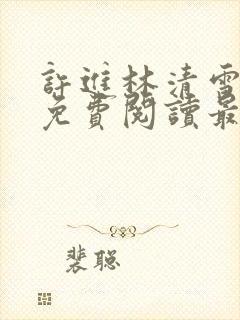 許進林清雪
免費閱讀最
裴聪